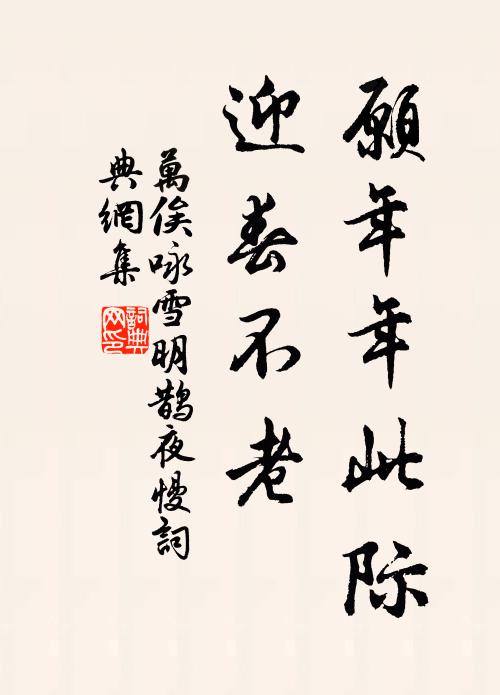 願年年此際
迎春不老
萬俟咏雪明鵲夜慢詞
典網集
詞典
网印